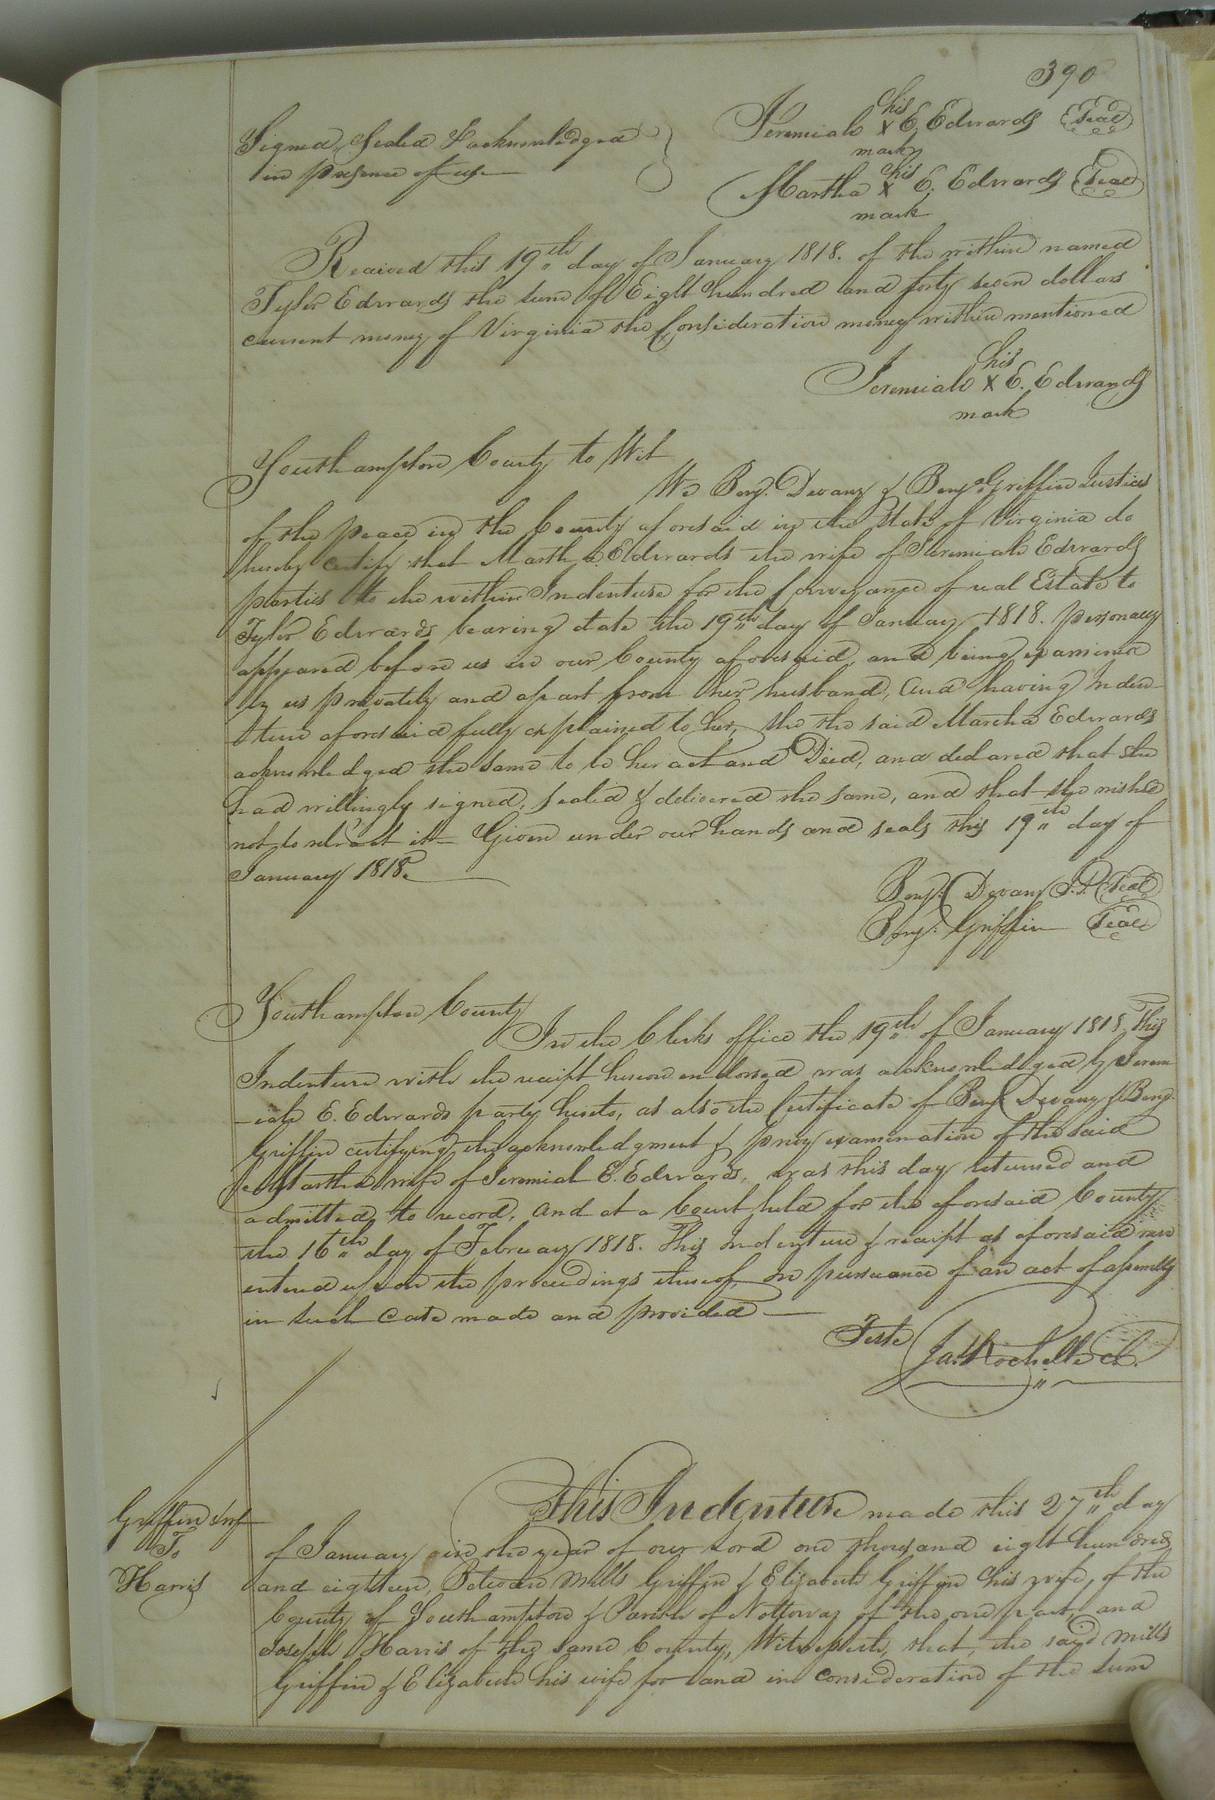 390
Signed, Sealed & acknowledged
in presence of us
his
Jeremiah X E. Edwards Seal
mark
his
Martha X E. Edwards Seal
mark
Received this 19th day of January 1818. of the within named
Tyler Edwards the sum of Eight hundred and forty seven dollars
current money of Virginia the Consideration money within mentioned
his
Jeremiah X E. Edwards
mark
Southampton County to Wit
We Benj. Devany & Benja Griffin Justices
of the peace in the County aforesaid in the State of Virginia do
hereby certify that Martha Edwards the wife of Jeremiah Edwards
parties to the within Indenture for the Conveyance of real Estate to
Tyler Edwards bearing date the 19th day of January 1818. personally
appeared before us in our County aforesaid, and being examined
by us privately and apart from her husband, and having Inden-
ture aforesaid fully explained to her, she the said Martha Edwards
acknowledged the same to be her act and Deed, and declared that she
had willingly signed, sealed & delivered the same, and that she wished
not to retract it— Given under our hands and seals this 19th day of
January 1818.
Benj. Devany J.P. Seal
Benj. Griffin Seal
Southampton County
In the Clerks office the 19th of January 1818 This
Indenture with the receipt hereon endorsed was acknowledged by Jerem
-iah E. Edwards party hereto, as also the Certificate of Benj. Devany & Benj.
Griffin certifying the acknowledgment & privy examination of the said
Martha wife of Jeremiah E. Edwards, was this day returned and
admitted to record, And at a Court held for the aforesaid County
the 16th day of February 1818. This Indenture & receipt as aforesaid were
entered upon the proceedings thereof, in pursuance of an act of assembly
in such case made and provided—
Teste
Ja. Rochelle Cl.
Griffin &
To
Harris
This Indenture made this 27th day
of January in the year of our Lord one thousand eight hundred
and eighteen, Between Mills Griffin & Elizabeth Griffin his wife, of the
County of Southampton & Parish of Nottoway of the one part, and
Joseph Harris of the same County, Witnesseth, that, the said Mills
Griffin & Elizabeth his wife for and in consideration of the sum